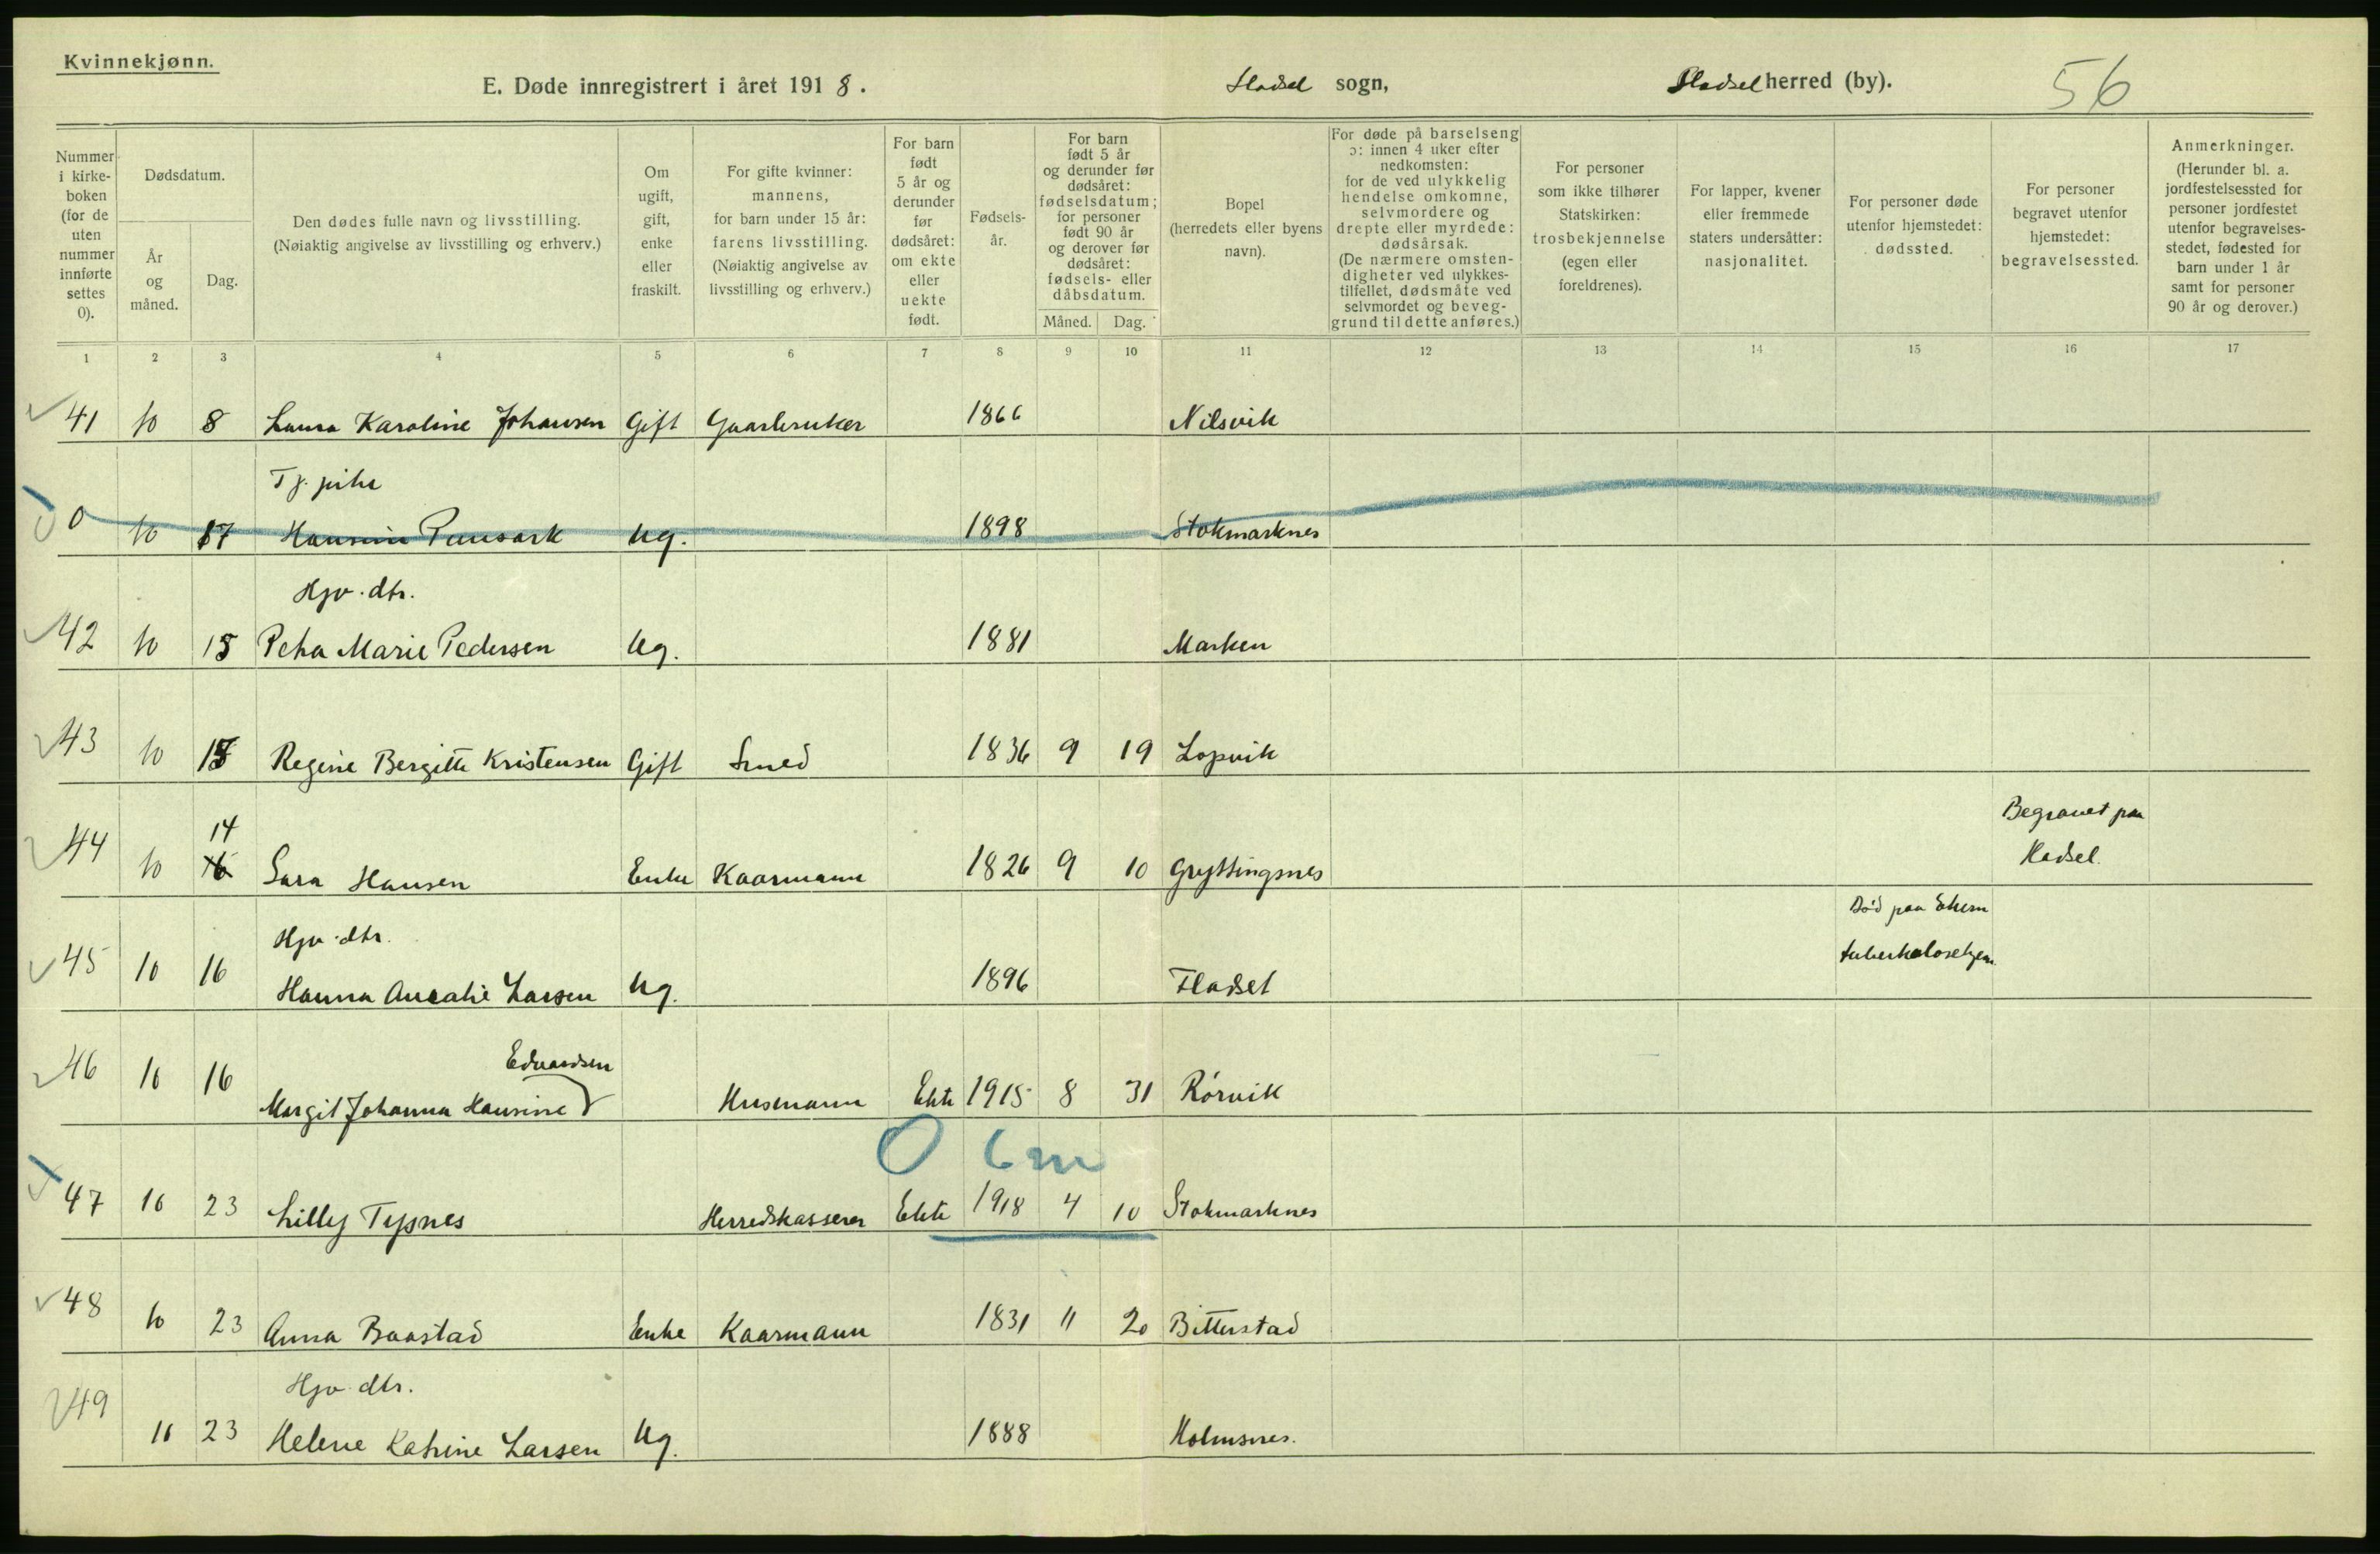 Kvinnekjønn.
E. Døde innregistrert i året 1918. Hadsel sogn, Hadsel herred (by). 56
Nummer i kirke-boken (for de uten nummer innførte settes 0).
Dødsdatum.
År og måned.
Dag.
Den dødes fulle navn og livsstilling.
(Nøiaktig angivelse av livsstilling og erhverv.)
Om ugift, gift, enke eller fraskilt.
For gifte kvinner: mannens, for barn under 15 år: farens livsstilling. (Nøiaktig angivelse av livsstilling og erhverv.)
For barn født 5 år og derunder før dødsåret: om ekte eller uekte født.
Fødsels-år.
For barn født 5 år og derunder før dødsåret: fødselsdatum; for personer født 90 år og derover før dødsåret: fødsels- eller dåbsdatum.
Måned. Dag.
Bopel (herredets eller byens navn).
For døde på barselseng ɔ: innen 4 uker efter nedkomsten: for de ved ulykkelig hendelse omkomne, selvmordere og drepte eller myrdede: dødsårsak. (De nærmere omsten-digheter ved ulykkes-tilfellet, dødsmåte ved selvmordet og beveg-grund til dette anføres.)
For personer som ikke tilhører Statskirken: trosbekjennelse (egen eller foreldrenes).
For lapper, kvener eller fremmede staters undersåtter: nasjonalitet.
For personer døde utenfor hjemstedet: dødssted.
For personer begravet utenfor hjemstedet: begravelsessted.
Anmerkninger. (Herunder bl. a. jordfestelsessted for personer jordfestet utenfor begravelses-stedet, fødested for barn under 1 år samt for personer 90 år og derover.)
1 2 3 4 5 6 7 8 9 10 11 12 13 14 15 16 17
41 10 8 Laura Karoline Johansen Gift Gaarbruker 1866 Nilsvik
Tj. pike
0 10 17 Hansine Ug. 1898 Stokmarknes
Hjv. dtr.
42 10 15 Petra Marie Pedersen Ug. 1881 Marken
43 10 15 Regine Bergitte Kristensen Gift Smed 1836 9 19 Lopvik
14
Begravet paa
44 10 16 Sara Hansen Enke Kaarmann 1826 9 10 Gryttingsnes Hadsel.
Hjv. dtr. Død paa
45 10 16 Hanna Amalie Larsen Ug. 1896 Fladset tuberkulosehjem
Edvardsen
46 10 16 Margit Johanna Hansine Husmann Ekte 1915 8 31 Rørvik
0 6 m
47 10 23 Lilly Tysnes Herredskasserer Ekte 1918 4 10 Stokmarknes
48 10 23 Anna Baastad Enke Kaarmann 1831 11 20 Bitterstad
Hjv. dtr.
49 10 23 Helene Katrine Larsen Ug. 1888 Holmsnes.